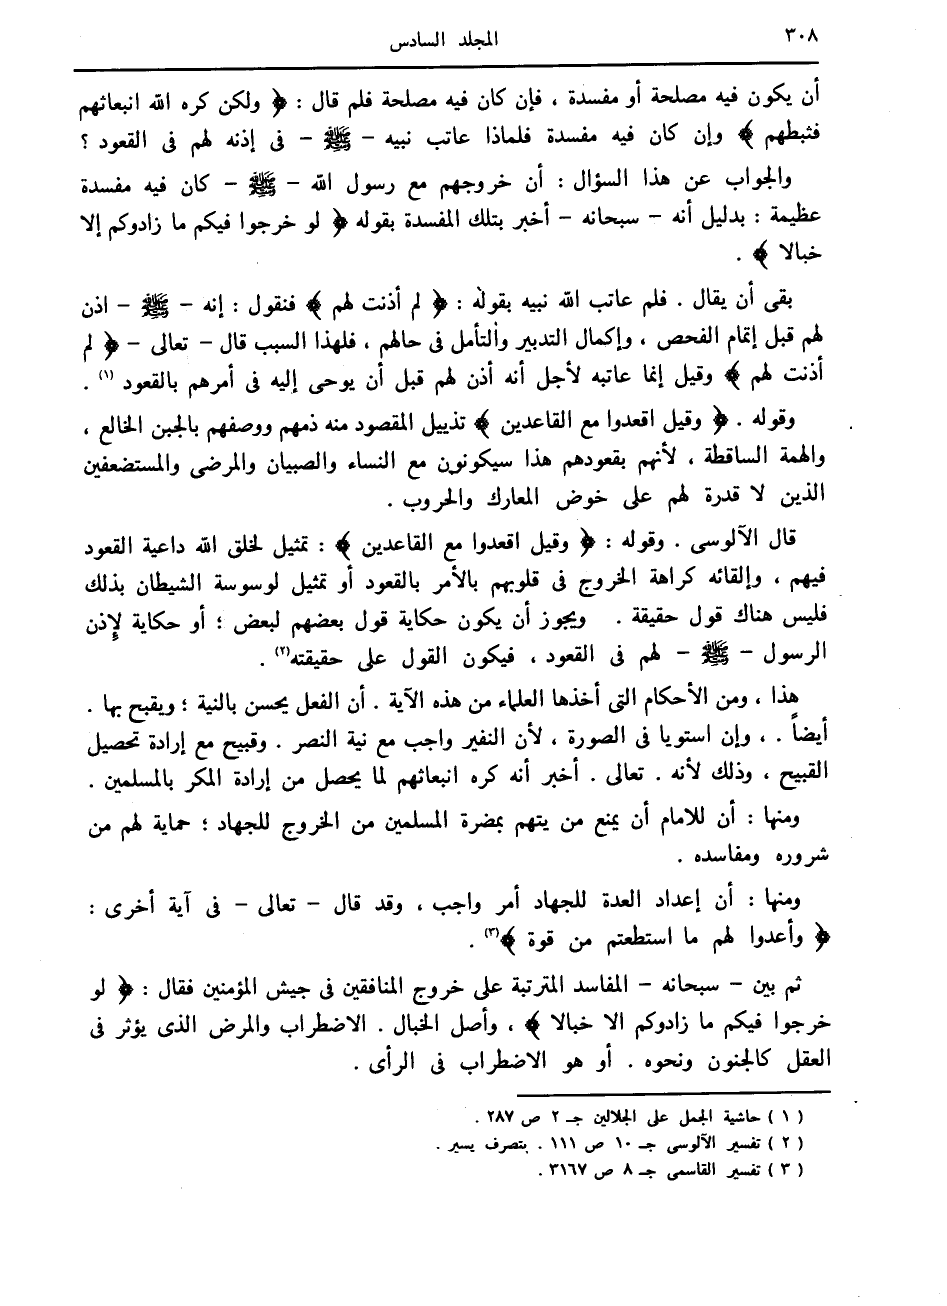 ٣٠٨
المجلد السادس
أن يكون فيه مصلحة أو مفسدة ، فإن كان فيه مصلحة فلم قال : ﴿ ولكن كره الله انبعاثهم
فثبطهم ﴾ وإن كان فيه مفسدة فلماذا عاتب نبيه – ﷺ – فى إذنه لهم فى القعود ؟
والجواب عن هذا السؤال : أن خروجهم مع رسول الله – ﷺ – كان فيه مفسدة
عظيمة : بدليل أنه – سبحانه – أخبر بتلك المفسدة بقوله ﴿ لو خرجوا فيكم ما زادوكم إلا
خبالا ﴾ .
بقى أن يقال . فلم عاتب الله نبيه بقوله : ﴿ لم أذنت لهم ﴾ فنقول : إنه – ﷺ – اذن
لهم قبل إتمام الفحص ، وإكمال التدبير والتأمل فى حالهم ، فلهذا السبب قال – تعالى – ﴿ لم
أذنت لهم ﴾ وقيل إنما عاتبه لأجل أنه أذن لهم قبل أن يوحى إليه فى أمرهم بالقعود (١) .
وقوله . ﴿ وقيل اقعدوا مع القاعدين ﴾ تذييل المقصود منه ذمهم ووصفهم بالجبن الخالع ،
والهمة الساقطة ، لأنهم بقعودهم هذا سيكونون مع النساء والصبيان والمرضى والمستضعفين
الذين لا قدرة لهم على خوض المعارك والحروب .
قال الآلوسى . وقوله : ﴿ وقيل اقعدوا مع القاعدين ﴾ : تمثيل لخلق الله داعية القعود
فيهم ، وإلقائه كراهة الخروج فى قلوبهم بالأمر بالقعود أو تمثيل لوسوسة الشيطان بذلك
فليس هناك قول حقيقة . ويجوز أن يكون حكاية قول بعضهم لبعض ؛ أو حكاية لإذن
الرسول – ﷺ – لهم فى القعود ، فيكون القول على حقيقته(٢) .
هذا ، ومن الأحكام التى أخذها العلماء من هذه الآية . أن الفعل يحسن بالنية ؛ ويقبح بها .
أيضاً . ، وإن استويا فى الصورة ، لأن النفير واجب مع نية النصر . وقبيح مع إرادة تحصيل
القبيح ، وذلك لأنه . تعالى . أخبر أنه كره انبعاثهم لما يحصل من إرادة المكر بالمسلمين .
ومنها : أن للامام أن يمنع من يتهم بمضرة المسلمين من الخروج للجهاد ؛ حماية لهم من
شروره ومفاسده .
ومنها : أن إعداد العدة للجهاد أمر واجب ، وقد قال – تعالى – فى آية أخرى :
﴿ وأعدوا لهم ما استطعتم من قوة ﴾(٣) .
ثم بين – سبحانه – المفاسد المترتبة على خروج المنافقين فى جيش المؤمنين فقال : ﴿ لو
خرجوا فيكم ما زادوكم الا خبالا ﴾ ، وأصل الخبال . الاضطراب والمرض الذى يؤثر فى
العقل كالجنون ونحوه . أو هو الاضطراب فى الرأى .
( ١ ) حاشية الجمل على الجلالين جـ ٢ ص ٢٨٧ .
( ٢ ) تفسير الآلوسى جـ ١٠ ص ١١١ . بتصرف يسير .
( ٣ ) تفسير القاسمى جـ ٨ ص ٣١٦٧ .